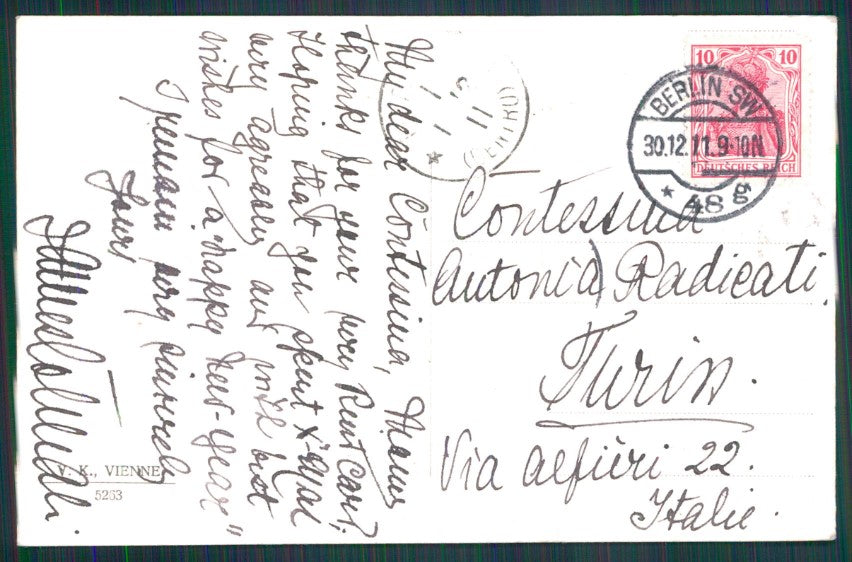 My dear Contessina, Many
thanks for your very kind card,
Hoping that you spent X-mas
very agreably and with best
wishes for a "happy New-Year"
I remain very sincerely
Yours
V. K., VIENNE
5263
10 10
DEUTSCHES REICH
BERLIN SW
30.12.11.9-10N
* 48 g
Contessina
Antonia Radicati,
Turin.
Via Alfieri 22.
Italie.